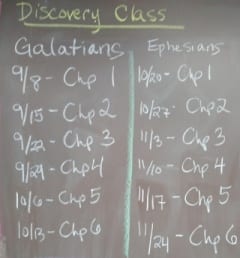 Discovery Class
Galatians
9/8 - Chp 1
9/15 - Chp 2
9/22 - Chp 3
9/29 - Chp 4
10/6 - Chp 5
10/13 - Chp 6
Ephesians
10/20 - Chp 1
10/27 - Chp 2
11/3 - Chp 3
11/10 - Chp 4
11/17 - Chp 5
11/24 - Chp 6